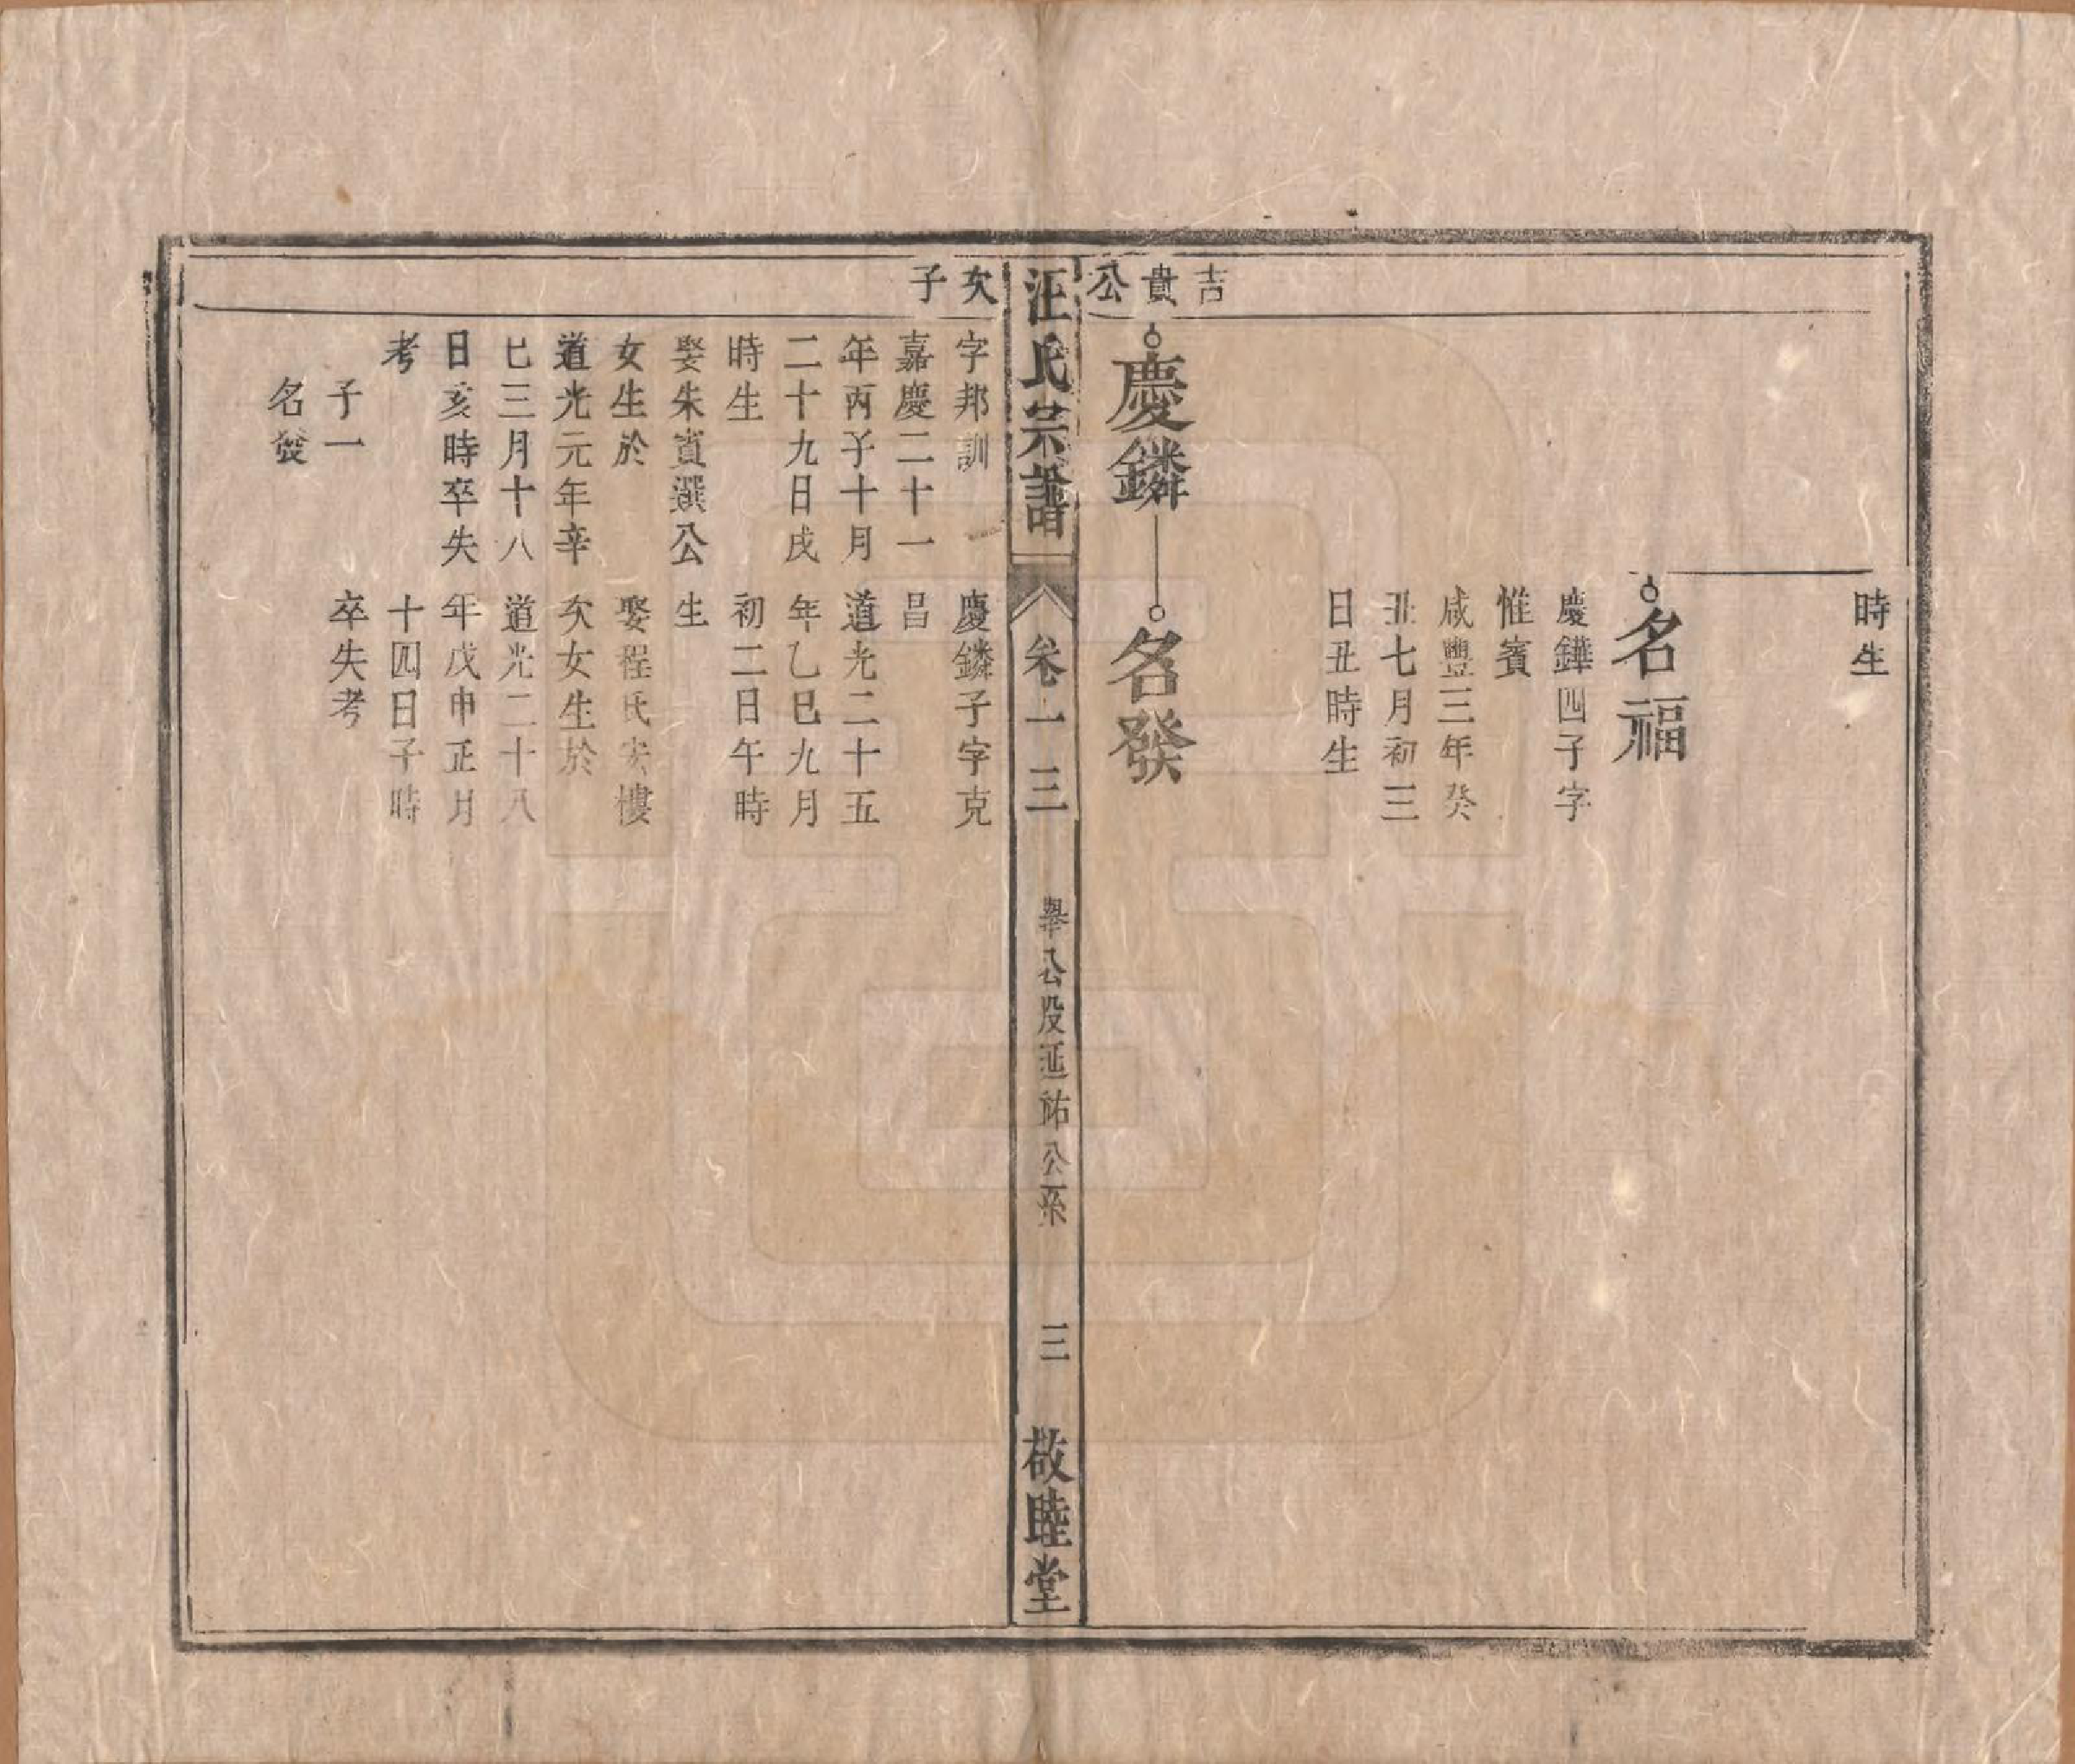 時生
名福
慶鏵四子字
惟賓
咸豐三年癸
丑七月初三
日丑時生
吉貴公
慶鏻
名發
汪氏宗譜
卷一三
舉公股延祐公系
三
敬睦堂
次子
字邦訓
嘉慶二十一
年丙子十月
二十九日戌
時生
娶朱賓選公
女生於
道光元年辛
巳三月十八
日亥時卒失
考
子一
名發
慶鏻子字克
昌
道光二十五
年乙巳九月
初二日午時
生
娶程氏宋樓
次女生於
道光二十八
年戊申正月
十四日子時
卒失考